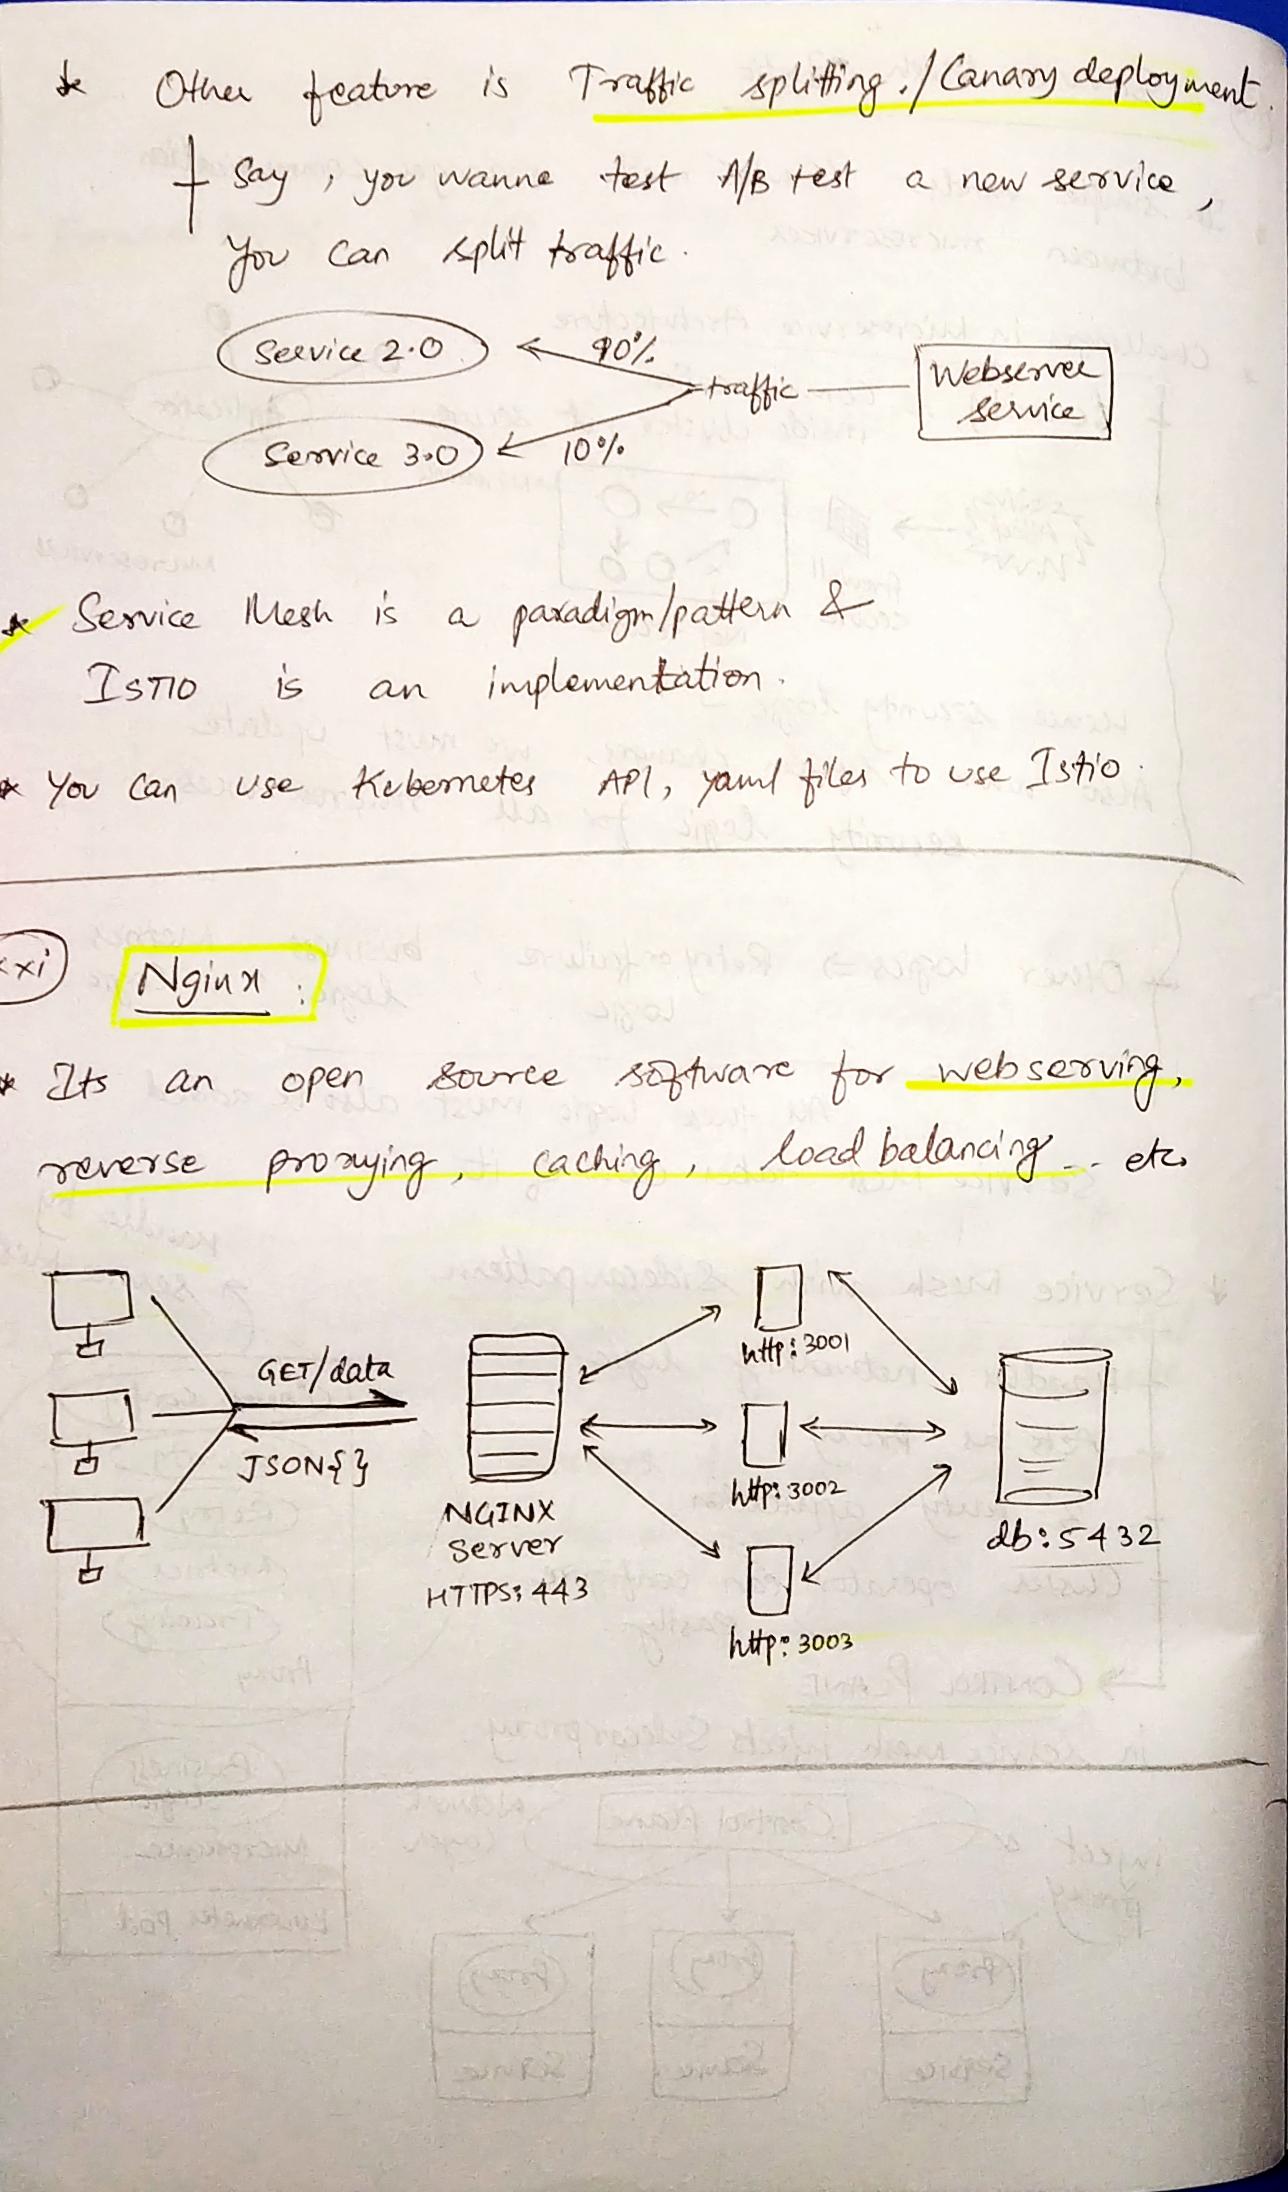 * Other feature is Traffic splitting./Canary deployment.
Say, you wanna test A/B test a new service,
You can split traffic.
Service 2.0
90%
traffic
Webserver
service
Service 3.0
10%
* Service Mesh is a paradigm/pattern &
ISTIO is an implementation.
* You can use Kubernetes API, yaml files to use Istio.
xxi
Nginx :
* Its an open source software for webserving,
reverse proxying, caching, load balancing... etc.
GET/data
JSON{}
NGINX
Server
HTTPS: 443
http: 3001
http: 3002
http: 3003
db: 5432